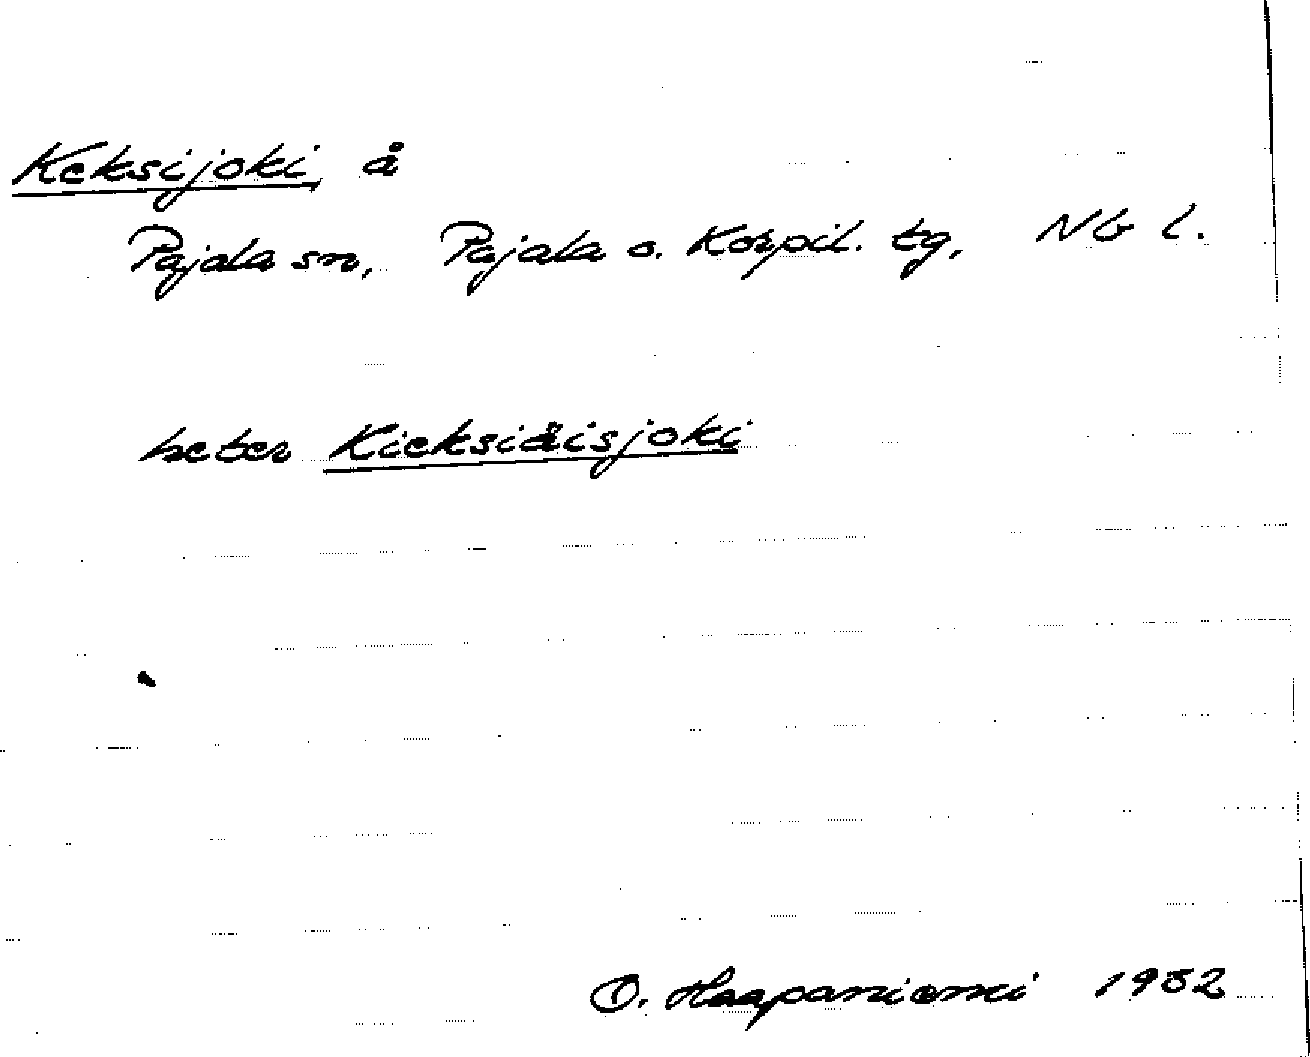 Keksijoki, å
Pajala sn, Pajala o. Korpil. tg, Nb l.
heter Kieksiäisjoki
O. Haapaniemi 1932